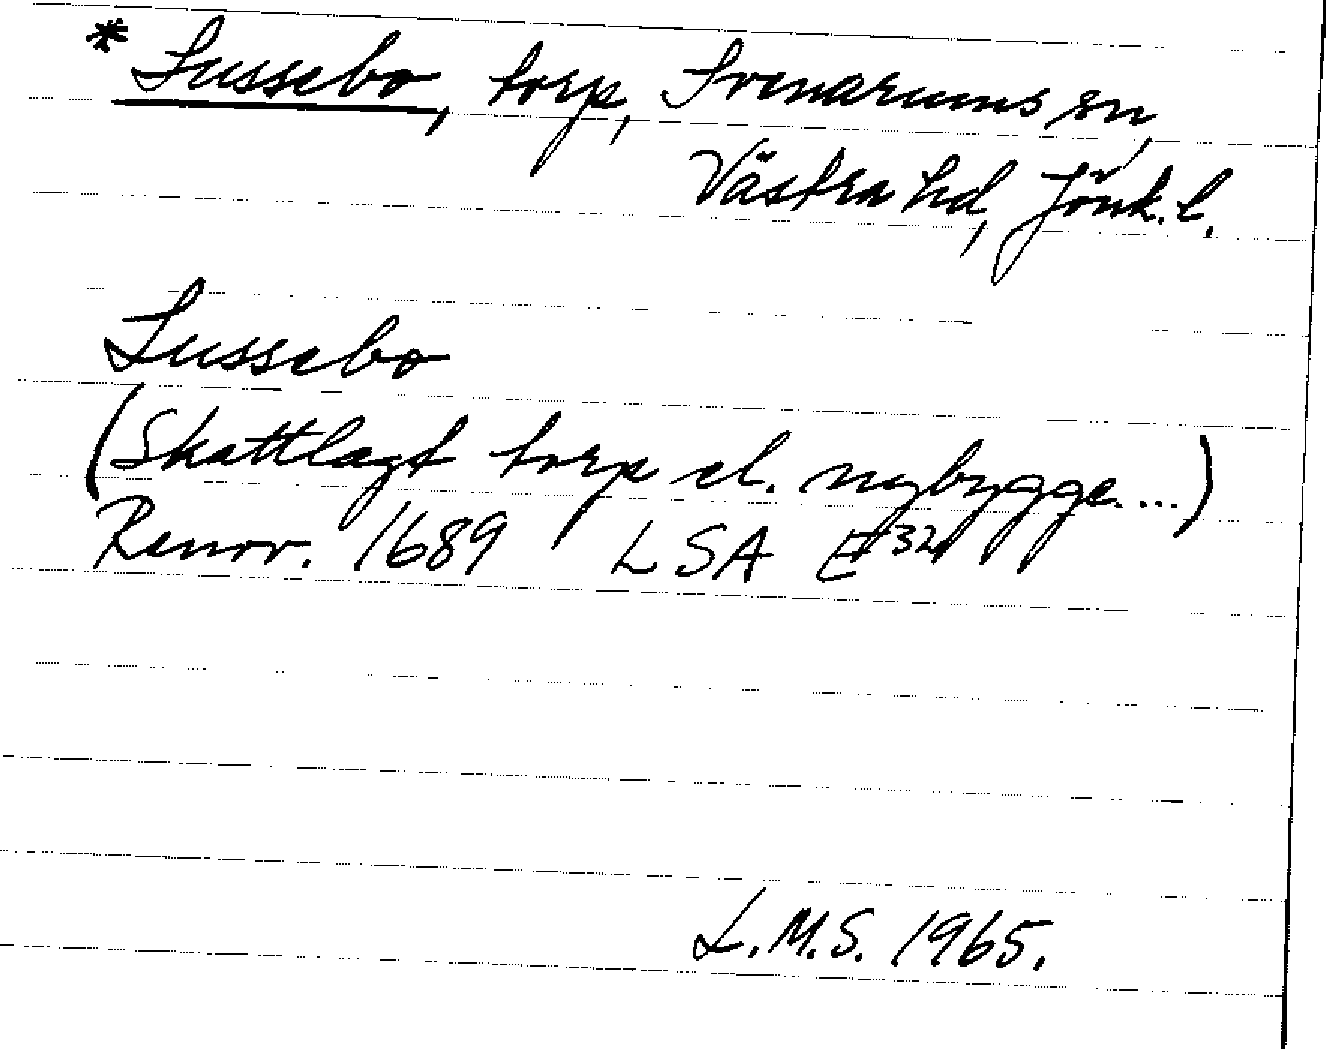 * Lussebo, torp, Svenarums sn,
Västra hd, Jönk. l.
Lussebo
(Skattlagt torp el. nybygge....)
Renov. 1689 LSA E 32
L.M.S. 1965.